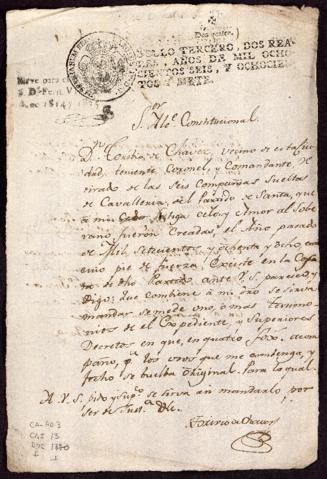 Dos reales.
SELLO TERCERO, DOS REA-
LES, AÑOS DE MIL OCHO-
CIENTOS SEIS, Y OCHOCIEN-
TOS SIETE.
Sirve para
S. D. Fern. V
de 1814 y
S.or Alc.e Constitucional.
D.n de Chavez, vecino de esta Ciu-
dad, teniente Coronel, y Comandante, re-
tirado de las Seis Compañias Sueltas
de Cavalleria, del Partido de Santa, que
à mi Celo y Amor al Sobe-
rano, fueron Creadas, el Año pasado
de Mil Setecientos y ochenta y ocho,
pie de fuerza, Existe en la
de dho Partido ante V.S. parezco, y
Digo: que combiene à mi dro se sirva
mandar se me de uno ò mas Testimo-
nios de el Expediente, y Superiores
Decretos en que, en quatro fox.s acom-
paño, p.a los usos que me combenga, y
fecho se buelba original. Para lo qual.
A V.S. pido y sup.co se sirva an mandarlo por
ser de Just.a &c.
de Chavez
CA-AD3
CAJ 13
DOC